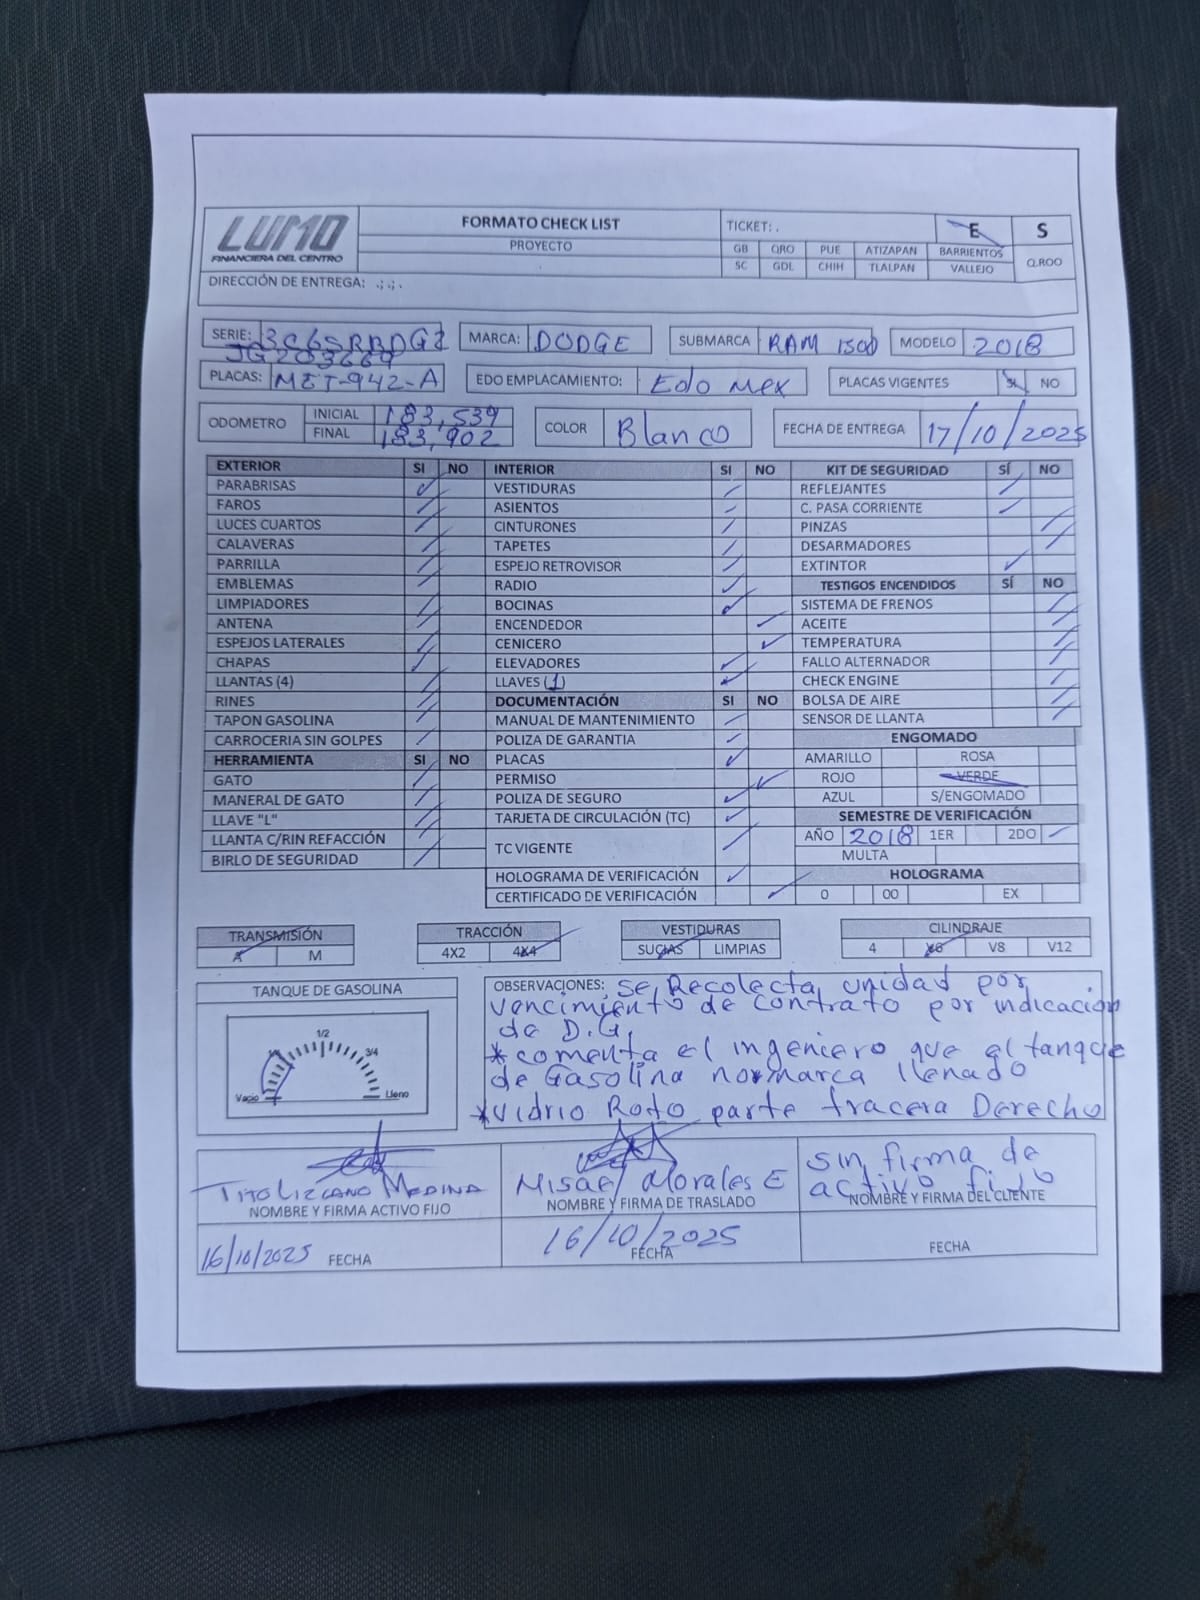 LUMO
FINANCIERA DEL CENTRO
FORMATO CHECK LIST
PROYECTO
TICKET: . E S
GB QRO PUE ATIZAPAN BARRIENTOS Q.ROO
SC GDL CHIH TLALPAN VALLEJO
DIRECCIÓN DE ENTREGA: .;.;.
SERIE: 3C6SRBDG2 MARCA: DODGE SUBMARCA RAM 1500 MODELO 2018
JG203669
PLACAS: MET-942-A EDO EMPLACAMIENTO: Edo Mex PLACAS VIGENTES SI NO
ODOMETRO INICIAL 183,539 COLOR Blanco FECHA DE ENTREGA 17/10/2025
FINAL 183,902
EXTERIOR SI NO INTERIOR SI NO KIT DE SEGURIDAD SÍ NO
PARABRISAS VESTIDURAS REFLEJANTES
FAROS ASIENTOS C. PASA CORRIENTE
LUCES CUARTOS CINTURONES PINZAS
CALAVERAS TAPETES DESARMADORES
PARRILLA ESPEJO RETROVISOR EXTINTOR
EMBLEMAS RADIO TESTIGOS ENCENDIDOS SÍ NO
LIMPIADORES BOCINAS SISTEMA DE FRENOS
ANTENA ENCENDEDOR ACEITE
ESPEJOS LATERALES CENICERO TEMPERATURA
CHAPAS ELEVADORES FALLO ALTERNADOR
LLANTAS (4) LLAVES (1) CHECK ENGINE
RINES DOCUMENTACIÓN SI NO BOLSA DE AIRE
TAPON GASOLINA MANUAL DE MANTENIMIENTO SENSOR DE LLANTA
CARROCERIA SIN GOLPES POLIZA DE GARANTIA ENGOMADO
HERRAMIENTA SI NO PLACAS AMARILLO ROSA
GATO PERMISO ROJO VERDE
MANERAL DE GATO POLIZA DE SEGURO AZUL S/ENGOMADO
LLAVE "L" TARJETA DE CIRCULACIÓN (TC) SEMESTRE DE VERIFICACIÓN
LLANTA C/RIN REFACCIÓN TC VIGENTE AÑO 2018 1ER 2DO
BIRLO DE SEGURIDAD MULTA
HOLOGRAMA DE VERIFICACIÓN HOLOGRAMA
CERTIFICADO DE VERIFICACIÓN 0 00 EX
TRANSMISIÓN TRACCIÓN VESTIDURAS CILINDRAJE
A M 4X2 4X4 SUCIAS LIMPIAS 4 V6 V8 V12
TANQUE DE GASOLINA
1/4 1/2 3/4
Vacio Lleno
OBSERVACIONES: se Recolecta unidad por
vencimiento de contrato por indicación
de D.G.
*comenta el ingeniero que el tanque
de Gasolina no marca llenado
*Vidrio Roto parte tracera Derecho
TITO LIZCANO MEDINA
NOMBRE Y FIRMA ACTIVO FIJO
16/10/2025 FECHA
Misael Morales E
NOMBRE Y FIRMA DE TRASLADO
16/10/2025
FECHA
Sin firma de
activo fijo
NOMBRE Y FIRMA DEL CLIENTE
FECHA